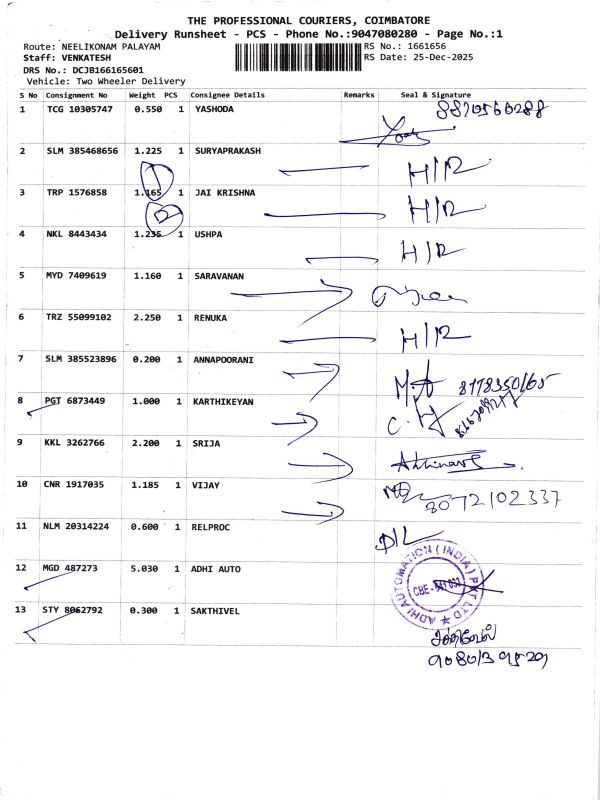 THE PROFESSIONAL COURIERS, COIMBATORE
Delivery Runsheet - PCS - Phone No.:9047080280 - Page No.:1
Route: NEELIKONAM PALAYAM RS No.: 1661656
Staff: VENKATESH RS Date: 25-Dec-2025
DRS No.: DCJB166165601
Vehicle: Two Wheeler Delivery
S No Consignment No Weight PCS Consignee Details Remarks Seal & Signature
1 TCG 10305747 0.550 1 YASHODA 8870560288
2 SLM 385468656 1.225 1 SURYAPRAKASH H/R
1
3 TRP 1576858 1.165 1 JAI KRISHNA H/R
2
4 NKL 8443434 1.235 1 USHPA H/R
5 MYD 7409619 1.160 1 SARAVANAN
6 TRZ 55099102 2.250 1 RENUKA H/R
7 SLM 385523896 0.200 1 ANNAPOORANI
8 PGT 6873449 1.000 1 KARTHIKEYAN
9 KKL 3262766 2.200 1 SRIJA
10 CNR 1917035 1.185 1 VIJAY 8072102337
11 NLM 20314224 0.600 1 RELPROC D/L
12 MGD 487273 5.030 1 ADHI AUTO
ADHI AUTOMATION (INDIA) PVT LTD
13 STY 8062792 0.300 1 SAKTHIVEL
சக்திவேல்